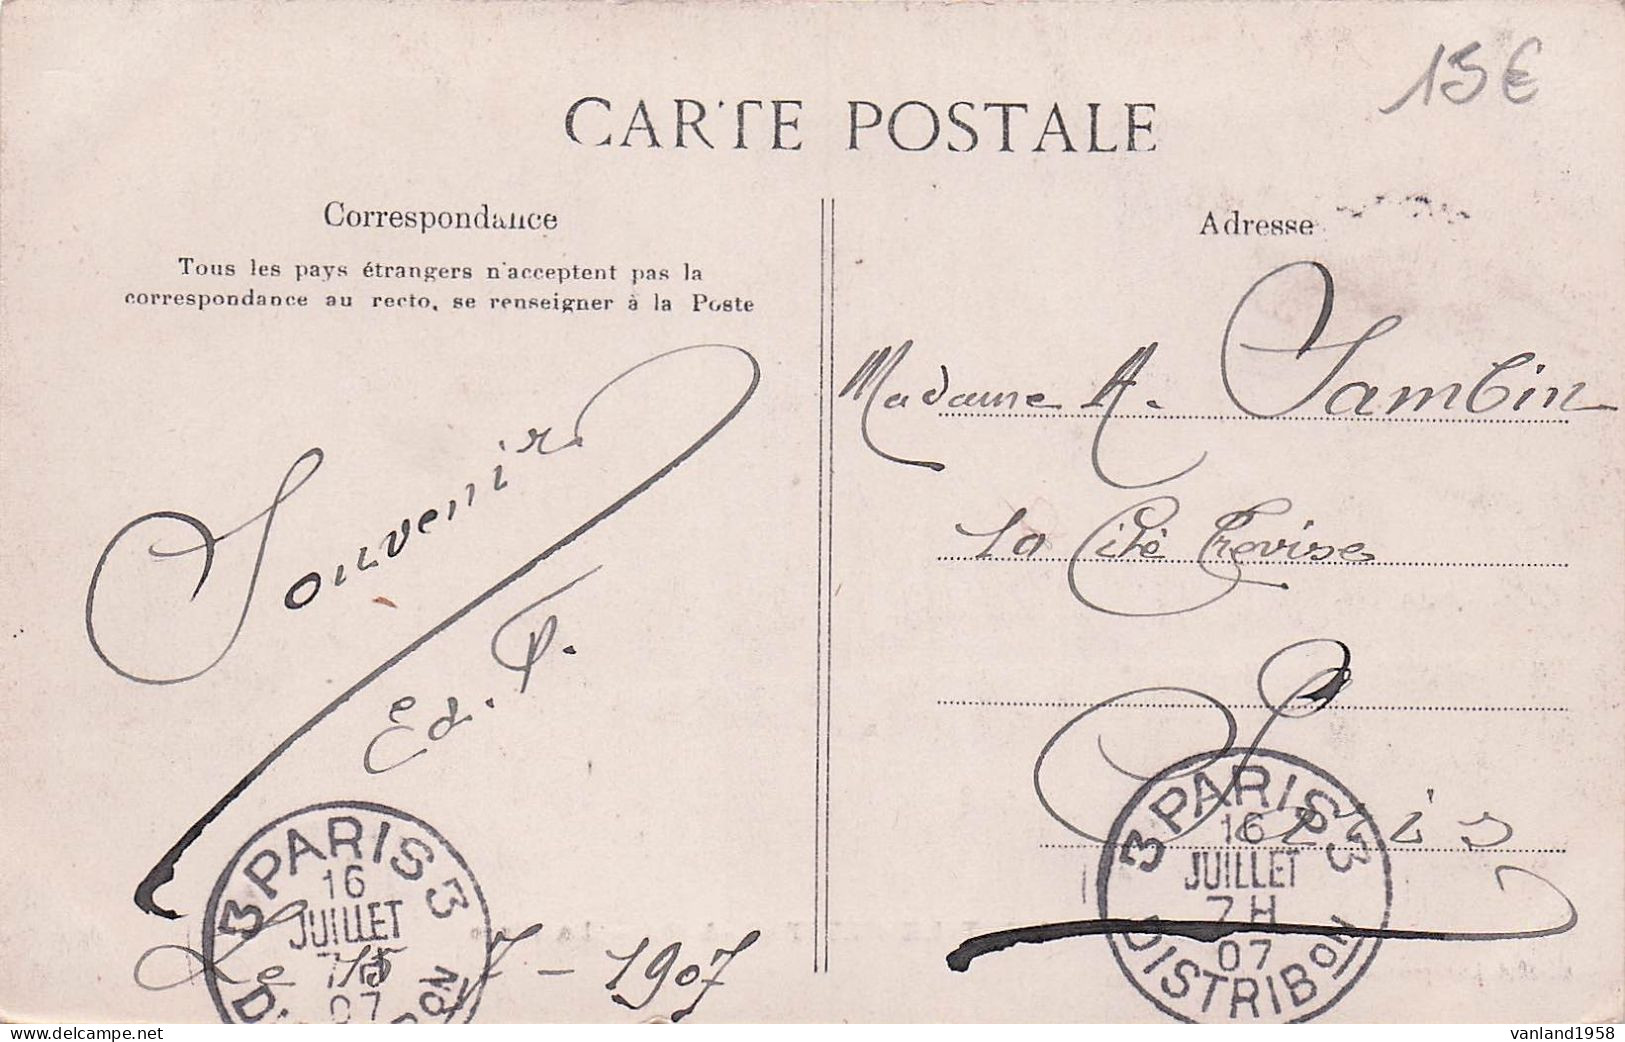 15€
CARTE POSTALE
Correspondance
Tous les pays étrangers n'acceptent pas la
correspondance au recto, se renseigner à la Poste
Souvenir.
Ed. P.
Le 15 - 7 - 1907
3 PARIS 3
16
JUILLET
7
07
Adresse
Madame A. Sambin
10 Cité Trévise
Paris
3 PARIS 3
16
JUILLET
7H
07
DISTRIBON
vanland1958